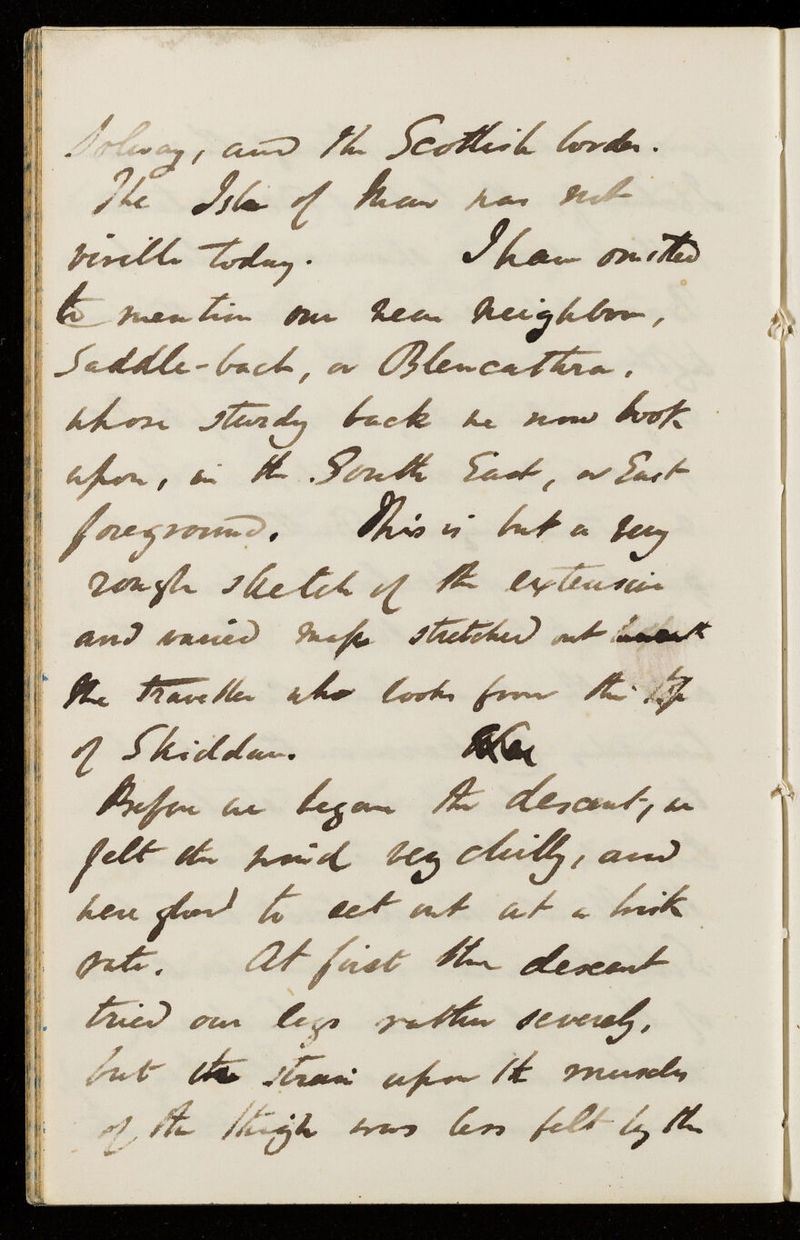 Solway, and the Scottish border.
The Isle of Man was not
visible today. I have omitted
to mention our near neighbour,
Saddle-back, or Blencathra,
whose sturdy back we now look
upon, in the South East, or East
foreground. This is but a very
rough sketch of the extensive
and varied map stretched out beneath
the traveller who looks from the top
of Skiddaw.
Before we began the descent, we
felt the wind very chilly, and
were glad to set out at a brisk
rate. At first the descent
tried our legs rather severely,
but the strain upon the muscles
of the thigh was less felt by the